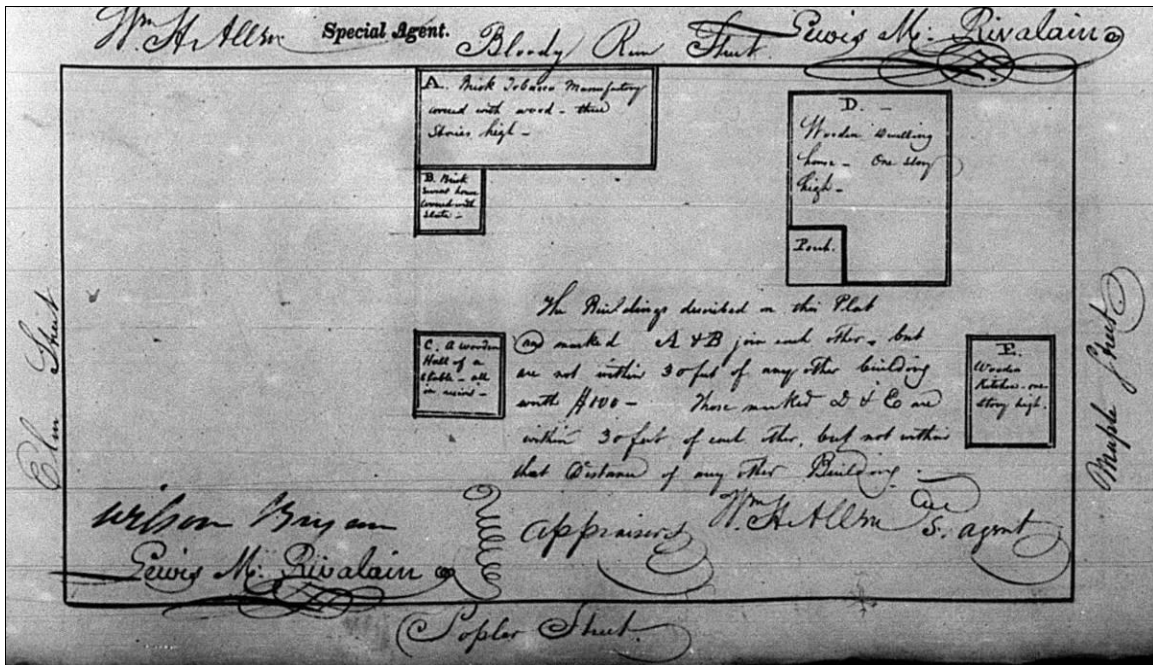 Wm H Allen Special Agent. Lewis M. Rivalain
Bloody Run Street
A. Brick Tobacco Manufactory
covered with wood - three
Stories high -
B. Brick
sweat house
covered with
slate -
D. -
Wooden Dwelling
house - One story
high -
Porch.
Elm Street
Maple Street
The Buildings described on this Plat
and marked A & B join each other - but
are not within 30 feet of any other building
worth $100 - Those marked D & E are
within 30 feet of each other, but not within
that Distance of any other Building.
C. A wooden
Hull of a
stable - all
in ruins -
E.
Wooden
Kitchen - one
story high.
Wilson Bryan
Lewis M. Rivalain
appraisers
Wm H Allen
S. agent
Poplar Street.